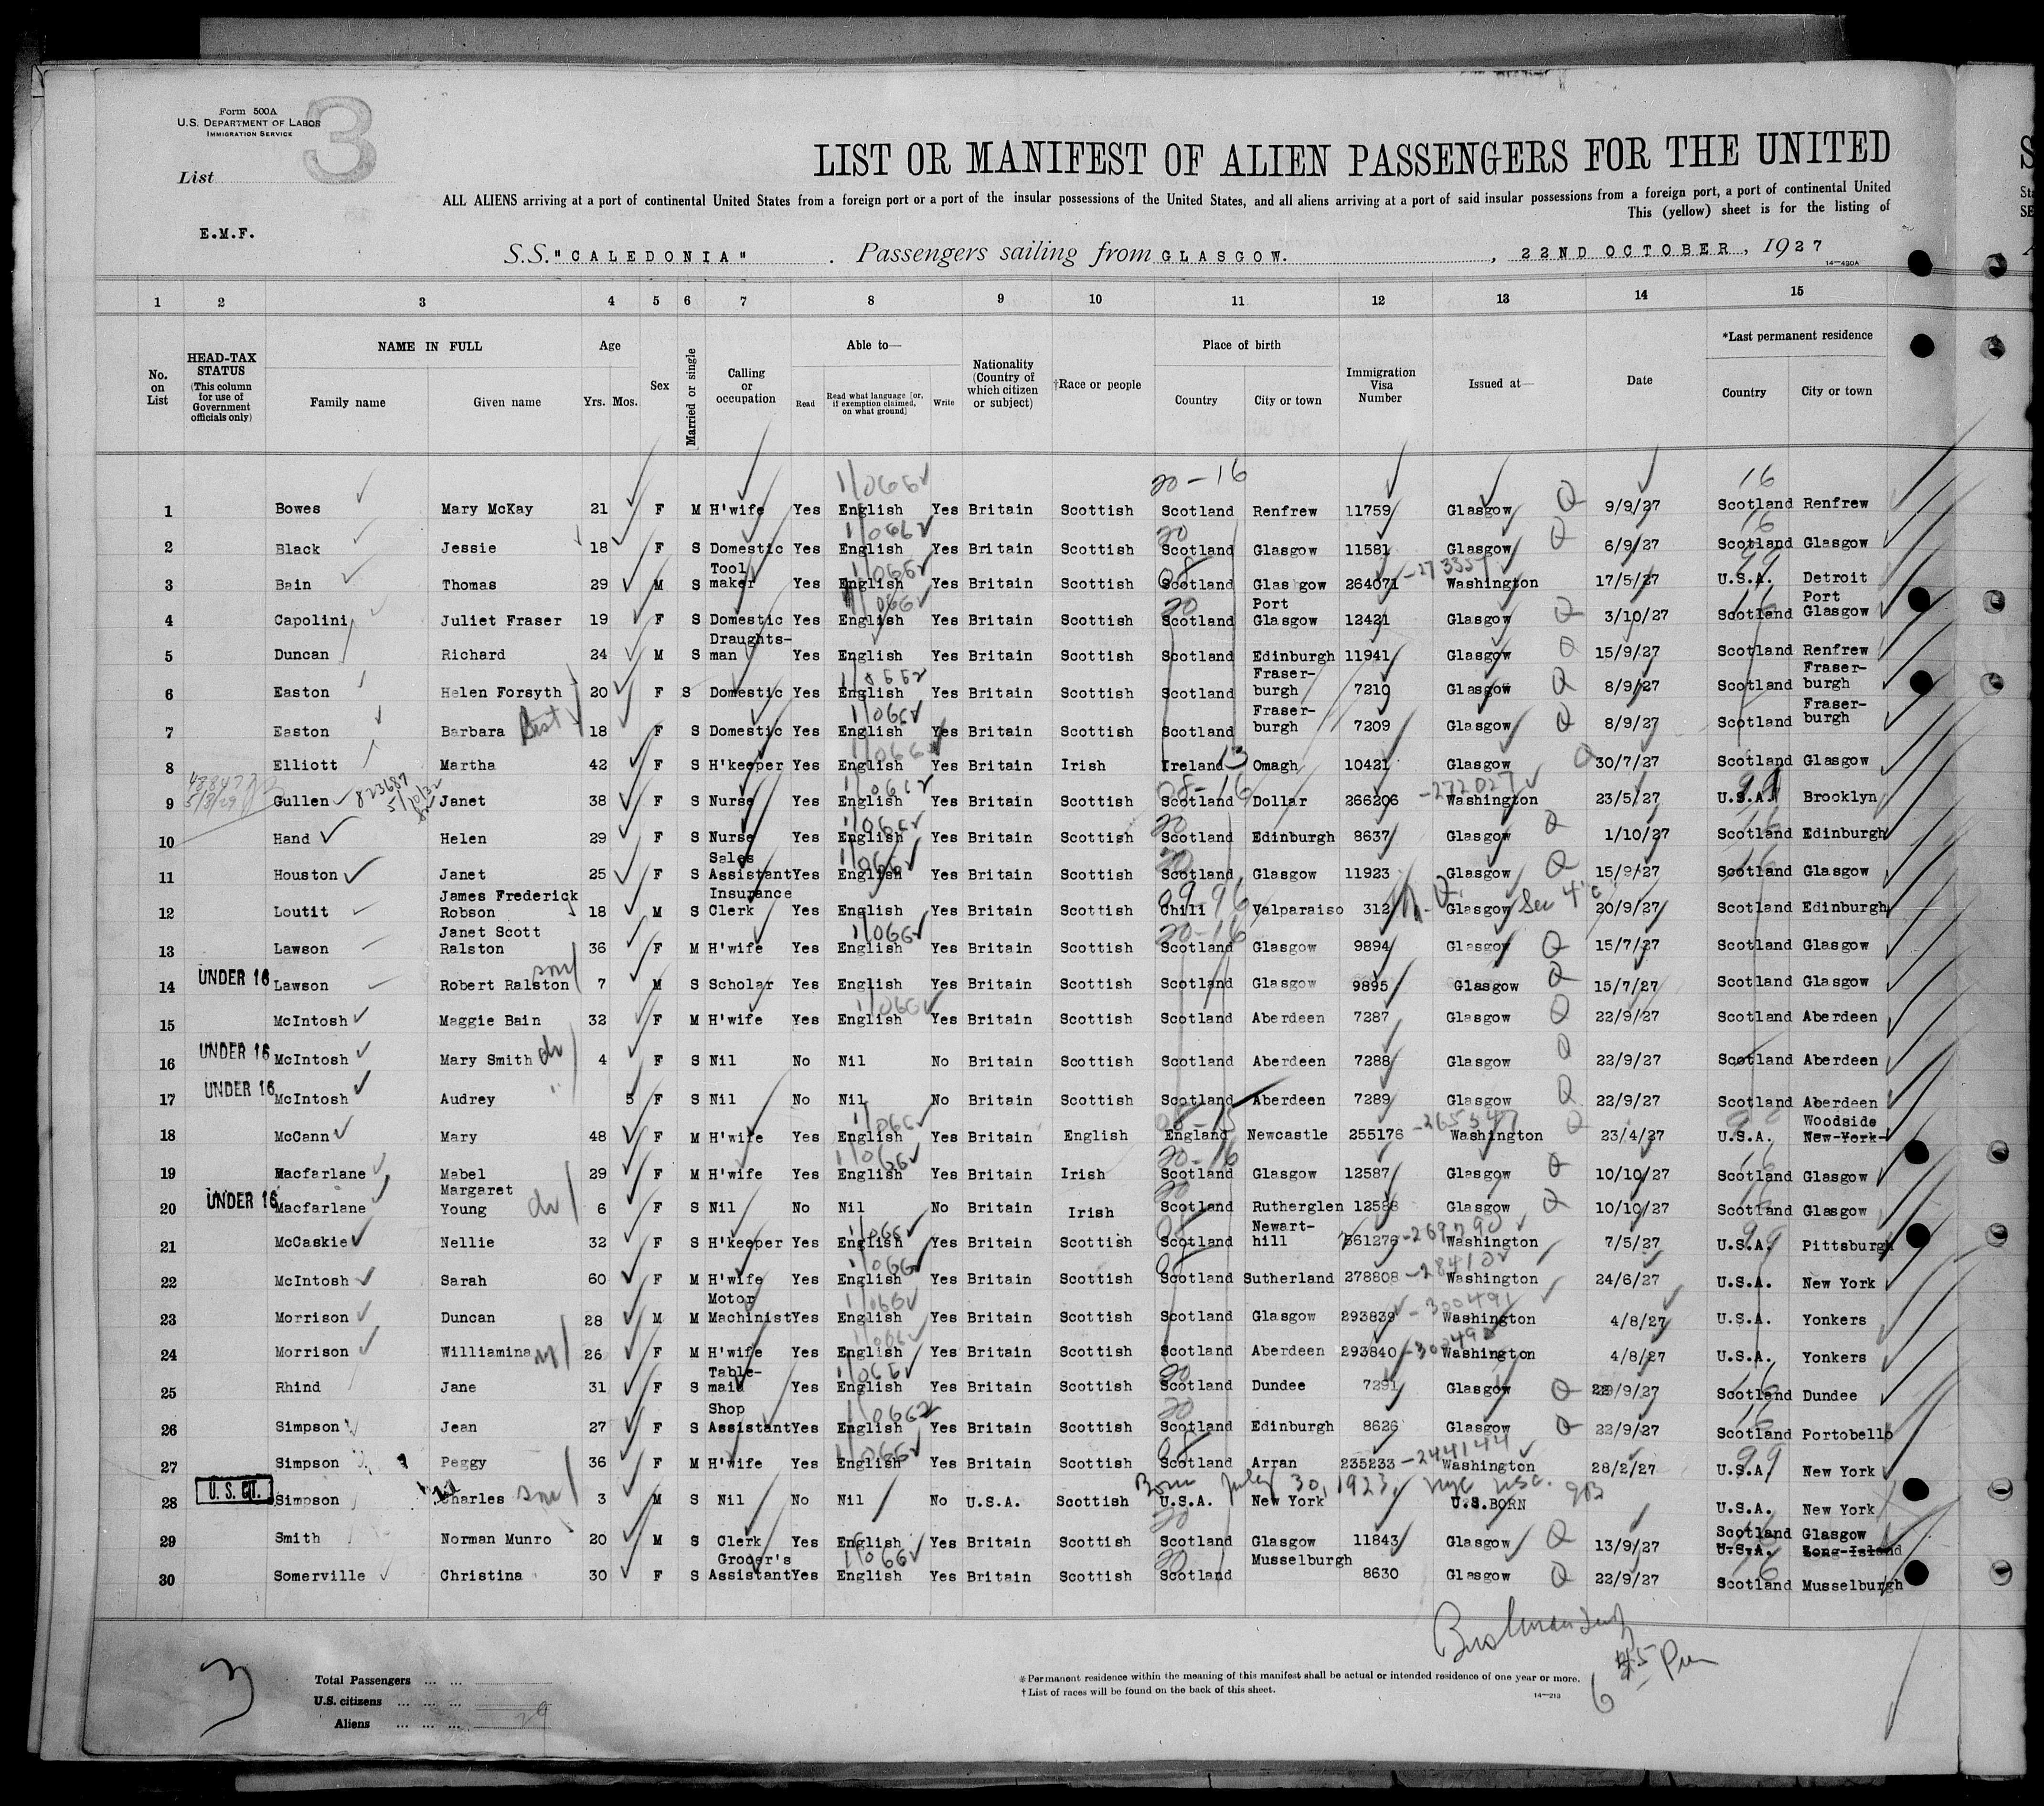 Form 500A
U.S. DEPARTMENT OF LABOR
IMMIGRATION SERVICE
3
List
E.M.F.
LIST OR MANIFEST OF ALIEN PASSENGERS FOR THE UNITED
ALL ALIENS arriving at a port of continental United States from a foreign port or a port of the insular possessions of the United States, and all aliens arriving at a port of said insular possessions from a foreign port, a port of continental United
This (yellow) sheet is for the listing of
S.S. "CALEDONIA" . Passengers sailing from GLASGOW. , 22ND OCTOBER , 1927
14—430A
1 2 3 4 5 6 7 8 9 10 11 12 13 14 15
No. on List
HEAD-TAX STATUS (This column for use of Government officials only)
NAME IN FULL Family name Given name
Age Yrs. Mos.
Sex
Married or single
Calling or occupation
Able to— Read Read what language [or, if exemption claimed, on what ground] Write
Nationality (Country of which citizen or subject)
†Race or people
Place of birth Country City or town
Immigration Visa Number
Issued at—
Date
*Last permanent residence Country City or town
20-16 16
1 Bowes Mary McKay 21 F M H'wife Yes English Yes Britain Scottish Scotland Renfrew 11759 Glasgow 9/9/27 Scotland Renfrew
2 Black Jessie 18 F S Domestic Yes English Yes Britain Scottish Scotland Glasgow 11581 Glasgow 6/9/27 Scotland Glasgow
3 Bain Thomas 29 M S Tool maker Yes English Yes Britain Scottish Scotland Glas gow 264071 Washington 17/5/27 U.S.A. Detroit
4 Capolini Juliet Fraser 19 F S Domestic Yes English Yes Britain Scottish Scotland Port Glasgow 12421 Glasgow 3/10/27 Scotland Port Glasgow
5 Duncan Richard 24 M S Draughts-man Yes English Yes Britain Scottish Scotland Edinburgh 11941 Glasgow 15/9/27 Scotland Renfrew
6 Easton Helen Forsyth 20 F S Domestic Yes English Yes Britain Scottish Scotland Fraser-burgh 7210 Glasgow 8/9/27 Scotland Fraser-burgh
7 Easton Barbara 18 F S Domestic Yes English Yes Britain Scottish Scotland Fraser-burgh 7209 Glasgow 8/9/27 Scotland Fraser-burgh
8 Elliott Martha 42 F S H'keeper Yes English Yes Britain Irish Ireland Omagh 10421 Glasgow 30/7/27 Scotland Glasgow
9 Gullen 823687 Janet 38 F S Nurse Yes English Yes Britain Scottish Scotland Dollar 266206 -272027 Washington 23/5/27 U.S.A. Brooklyn
10 Hand Helen 29 F S Nurse Yes English Yes Britain Scottish Scotland Edinburgh 8637 Glasgow 1/10/27 Scotland Edinburgh
11 Houston Janet 25 F S Sales Assistant Yes English Yes Britain Scottish Scotland Glasgow 11923 Glasgow 15/9/27 Scotland Glasgow
12 Loutit James Frederick Robson 18 M S Insurance Clerk Yes English Yes Britain Scottish Chili Valparaiso 312 Glasgow 20/9/27 Scotland Edinburgh
13 Lawson Janet Scott Ralston 36 F M H'wife Yes English Yes Britain Scottish Scotland Glasgow 9894 Glasgow 15/7/27 Scotland Glasgow
14 UNDER 16 Lawson Robert Ralston son 7 M S Scholar Yes English Yes Britain Scottish Scotland Glasgow 9895 Glasgow 15/7/27 Scotland Glasgow
15 McIntosh Maggie Bain 32 F M H'wife Yes English Yes Britain Scottish Scotland Aberdeen 7287 Glasgow 22/9/27 Scotland Aberdeen
16 UNDER 16 McIntosh Mary Smith 4 F S Nil No Nil No Britain Scottish Scotland Aberdeen 7288 Glasgow 22/9/27 Scotland Aberdeen
17 UNDER 16 McIntosh Audrey 5 F S Nil No Nil No Britain Scottish Scotland Aberdeen 7289 Glasgow 22/9/27 Scotland Aberdeen
18 McCann Mary 48 F M H'wife Yes English Yes Britain English England Newcastle 255176 Washington 23/4/27 U.S.A. Woodside New York
19 Macfarlane Mabel 29 F M H'wife Yes English Yes Britain Irish Scotland Glasgow 12587 Glasgow 10/10/27 Scotland Glasgow
20 UNDER 16 Macfarlane Margaret Young 6 F S Nil No Nil No Britain Irish Scotland Rutherglen 12588 Glasgow 10/10/27 Scotland Glasgow
21 McCaskie Nellie 32 F S H'keeper Yes English Yes Britain Scottish Scotland Newart-hill 561276 -269790 Washington 7/5/27 U.S.A. Pittsburgh
22 McIntosh Sarah 60 F M H'wife Yes English Yes Britain Scottish Scotland Sutherland 278808 Washington 24/6/27 U.S.A. New York
23 Morrison Duncan 28 M M Motor Machinist Yes English Yes Britain Scottish Scotland Glasgow 293839 -300491 Washington 4/8/27 U.S.A. Yonkers
24 Morrison Williamina 26 F M H'wife Yes English Yes Britain Scottish Scotland Aberdeen 293840 Washington 4/8/27 U.S.A. Yonkers
25 Rhind Jane 31 F S Table-maid Yes English Yes Britain Scottish Scotland Dundee 7291 Glasgow /9/27 Scotland Dundee
26 Simpson Jean 27 F S Shop Assistant Yes English Yes Britain Scottish Scotland Edinburgh 8626 Glasgow 22/9/27 Scotland Portobello
27 Simpson Peggy 36 F M H'wife Yes English Yes Britain Scottish Scotland Arran 235233 -244144 Washington 28/2/27 U.S.A. New York
Born July 30, 1923, NYC USC.
28 U.S. CIT. Simpson Charles son 3 M S Nil No Nil No U.S.A. Scottish U.S.A. New York U.S.BORN U.S.A. New York
29 Smith Norman Munro 20 M S Clerk Yes English Yes Britain Scottish Scotland Glasgow 11843 Glasgow 13/9/27 Scotland Glasgow U.S.A. Long Island
30 Somerville Christina 30 F S Grocer's Assistant Yes English Yes Britain Scottish Scotland Musselburgh 8630 Glasgow 22/9/27 Scotland Musselburgh
3
Total Passengers ... ...
U.S. citizens ... ... ...
Aliens ... ... ... 29
* Permanent residence within the meaning of this manifest shall be actual or intended residence of one year or more.
† List of races will be found on the back of this sheet.
14—213